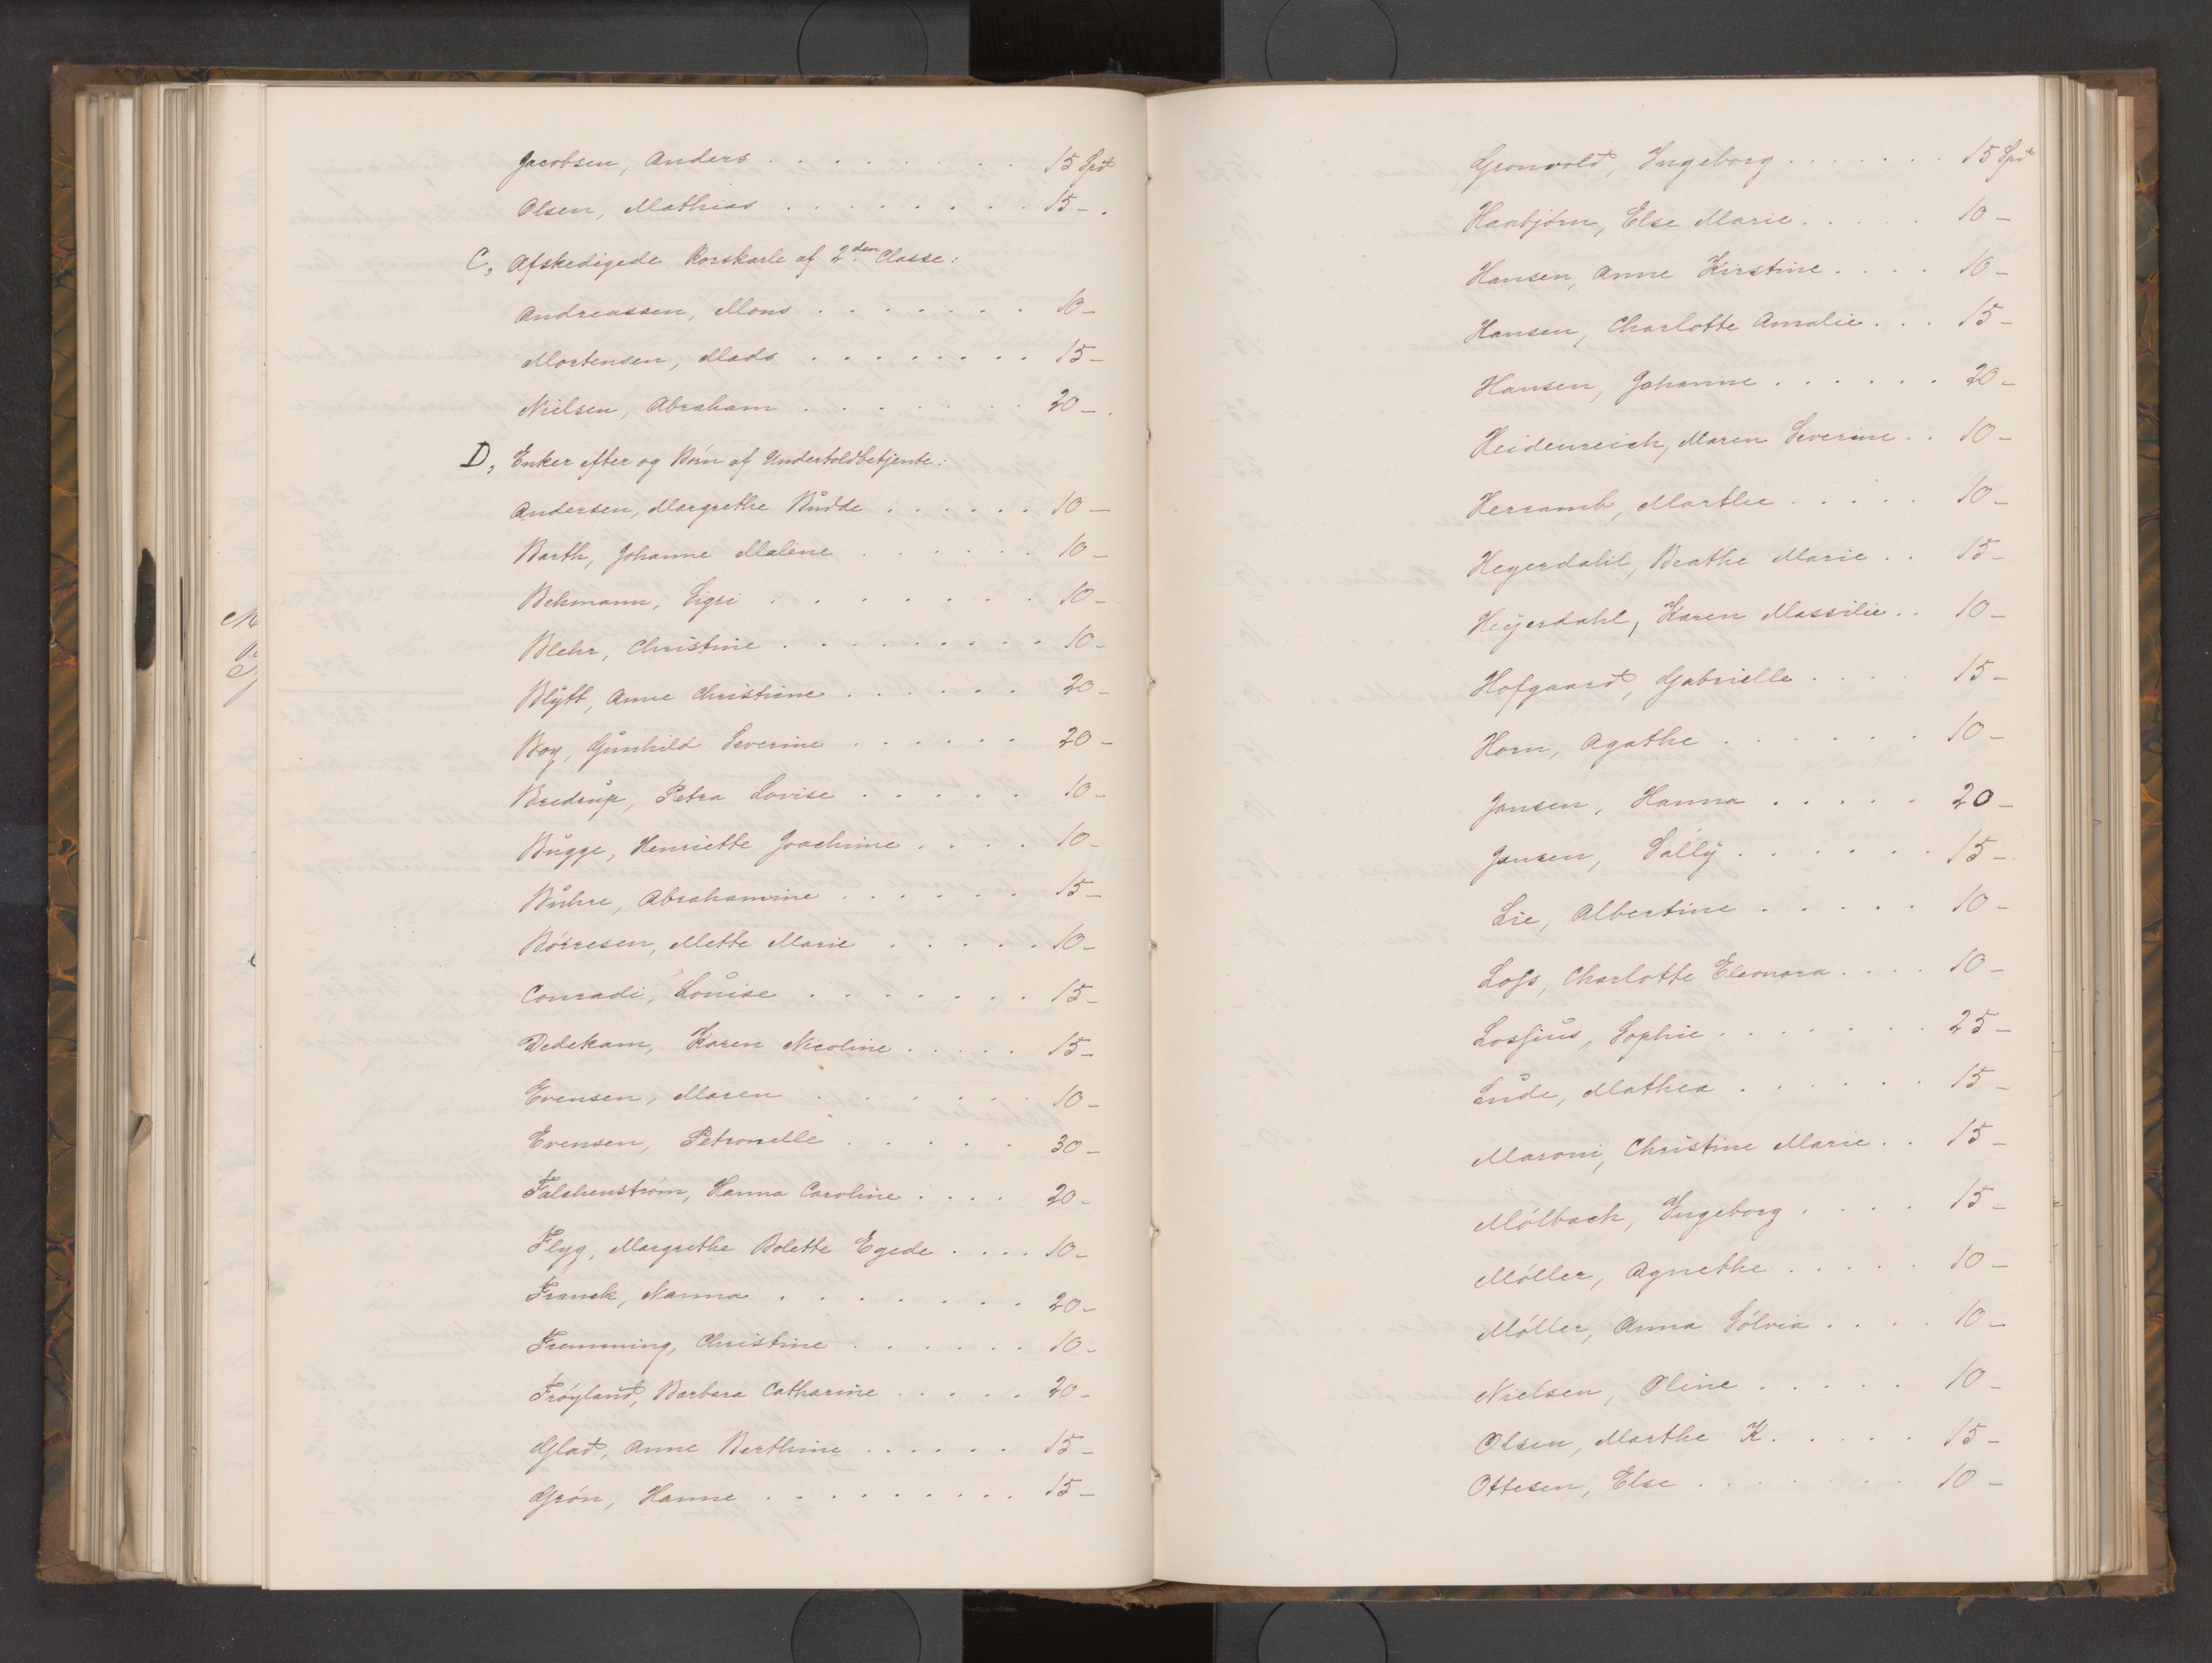 Jacobsen, Anders . . . . . . . . . 15 Spd
Olsen, Mathias . . . . . . . . 15 - .
C, Afskedigede Rorskarle af 2den Classe:
Andreassen, Mons . . . . . . . 10 -
Mortensen, Mads . . . . . . . . 15 -
Nielsen, Abraham . . . . . . . 20 - .
D, Enker efter og Börn af Undertoldbetjente:
Andersen, Margrethe Budde . . . . . . 10 -
Barth, Johanne Malene . . . . . . 10 -
Behmann, Sigri . . . . . . . . 10 -
Blehr, Christine . . . . . . . . . 10 -
Blÿtt, Anne Christine . . . . . . 20 -
Boy, Gunhild Severine . . . . . . 20 -
Bredrup, Petra Lovise . . . . . 10 -
Bugge, Henriette Joachime . . . . 10 -
Buhre, Abrahamine . . . . . . 15 -
Börresen, Mette Marie . . . . . 10 -
Conradi, Louise . . . . . . . 15 -
Dedekam, Karen Nicoline . . . . . 15 -
Evensen, Maren . . . . . . 10 -
Evensen, Petronelle . . . . . 30 -
Falchenstrøm, Hanna Caroline . . . . 20 -
Flyg, Margrethe Bolette Egede . . . . 10 -
Franck, Nanna . . . . . . . 20 -
Fremming, Christine . . . . . . 10 -
Fröyland, Barbara Catharine . . . . . 20 -
Glad, Anne Berthine . . . . . . 15 -
Grön, Hanne . . . . . . . . . 15 -
Gronvold, Ingeborg . . . . . . . 15 Spd
Haabjörn, Else Marie . . . . . 10 -
Hansen, Anne Kirstine . . . . 10 -
Hansen, Charlotte Amalie . . . 15 -
Hansen, Johanne . . . . . . 20 -
Heidenreich, Maren Severine . . 10 -
Herramb, Marthe . . . . . 10 -
Hegerdahl, Beathe Marie . . 15 -
Heÿerdahl, Karen Massilie . . 10 -
Hofgaard, Gabrielle . . . . 15 -
Horn, Agathe . . . . . . 10 -
Jansen, Hanna . . . . . 20 -
Jansen, Sallÿ . . . . . . 15 -
Lie, Albertine . . . . . 10 -
Loss, Charlotte Eleonora . . . . 10 -
Lossius, Sophie . . . . . . . 25 -
Lude, Mathea . . . . . . 15 -
Maroni, Christine Marie . . 15 -
Mölbach, Ingeborg . . . . 15 -
Möller, Agnethe . . . . . 10 -
Möller, Anna Sölvia . . . . 10 -
Nielsen, Oline . . . . . 10 -
Olsen, Marthe K. . . . . 15 -
Ottesen, Else . . . . . . . 10 -